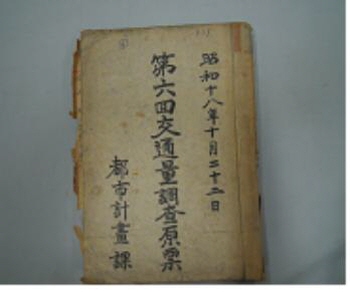 昭和十八年十月二十二日
第六回交通量調査原票
都市計畫課